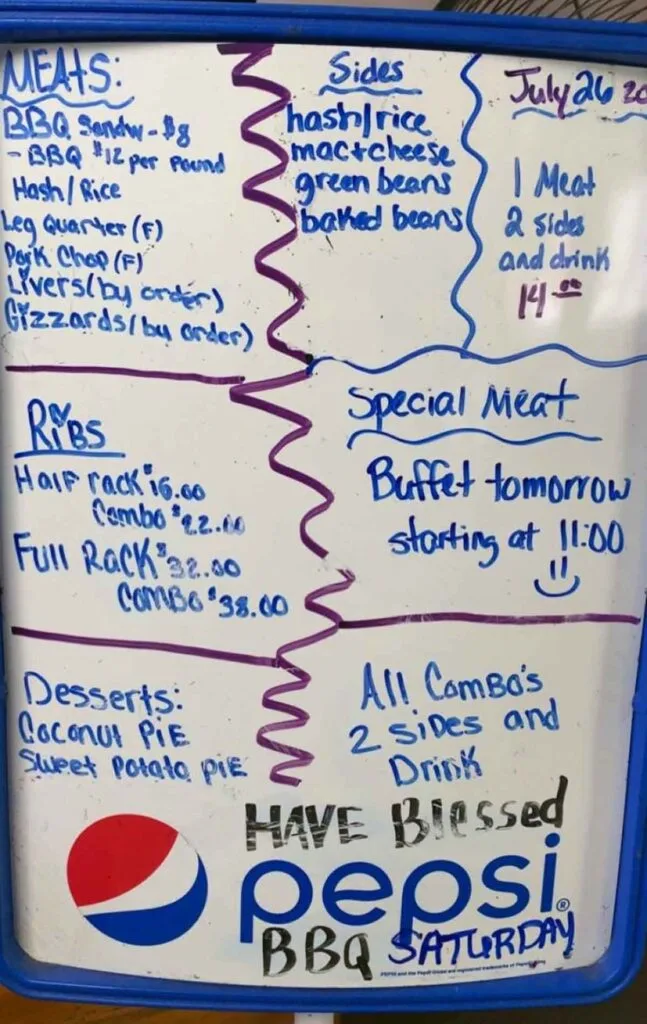 MEAtS:
BBQ Sandw - $8
- BBQ $12 per Pound
Hash/Rice
Leg Quarter (F)
Pork Chop (F)
Livers (by order)
Gizzards (by order)
Sides
hash/rice
mac+cheese
green beans
baked beans
July 26 20
1 Meat
2 sides
and drink
14.00
RiBS
Half rack $16.00
Combo $22.00
Full Rack $32.00
ComBo $38.00
Special Meat
Buffet tomorrow
starting at 11:00
Desserts:
Coconut PiE
Sweet Potato PiE
All ComBo's
2 SiDes and
Drink
HAVE Blessed
pepsi®
BBQ SATURDAY